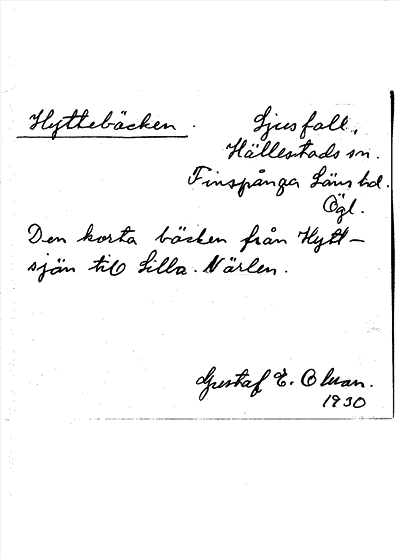 Hyttebäcken. Ljusfall,
Hällestads sn.
Finspånga Läns hd.
Ögl.
Den korta bäcken från Hytt-
sjön till Lilla. Närlen.
Gustaf E. Olman.
1930